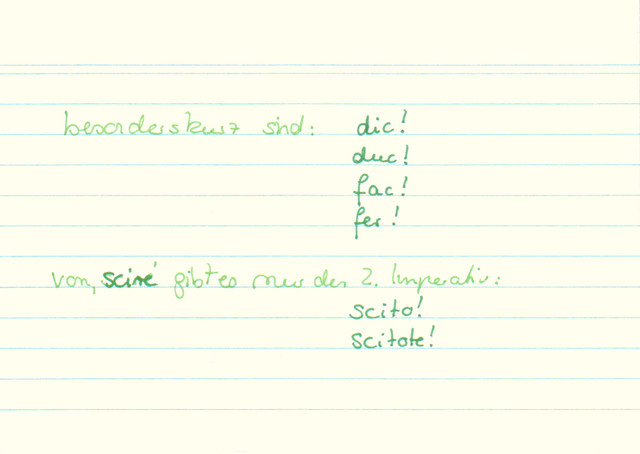 besonders kurz sind: dic!
duc!
fac!
fer!
von ‚scire‘ gibt es nur den 2. Imperativ:
scito!
scitote!